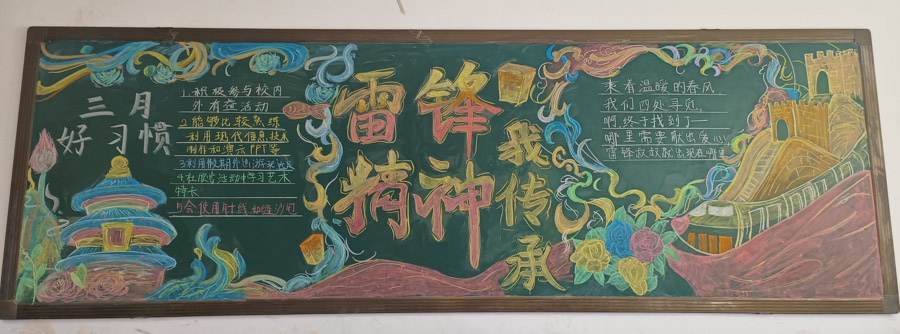 三月
好习惯
1.积极参与校内
外有益活动
2.能够比较熟练
利用现代信息技术
制作和演示PPT等
3.利用假期外出游
4.在 活动中学习艺术
特长
5.会使用针线
雷锋
精神
我传承
乘着温暖的春风
我们四处寻觅
啊,终于找到了—
哪里需要献出爱心
雷锋叔叔就出现在哪里